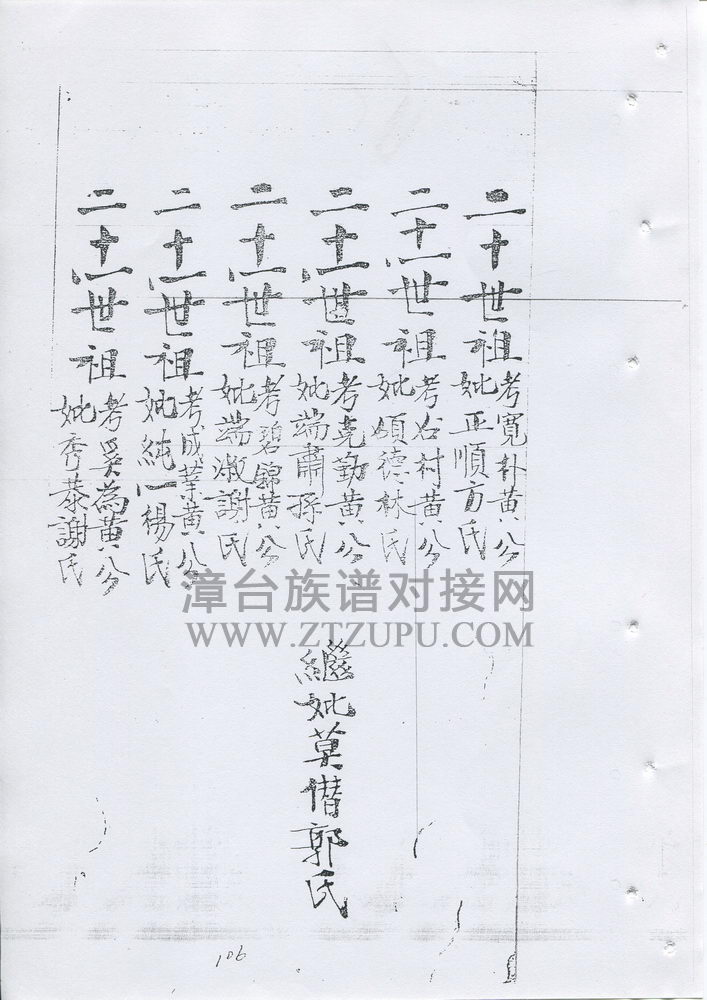 二十世祖
考寬朴黃公
妣正順方氏
二十一世祖
考必村黃公
妣碩德林氏
二十一世祖
考克勤黃公
妣端肅孫氏
繼妣莫僭郭氏
二十一世祖
考碧錦黃公
妣端淑謝氏
二十一世祖
考成業黃公
妣純一楊氏
二十一世祖
考奚為黃公
妣秀恭謝氏
漳台族谱对接网
WWW.ZTZUPU.COM
106